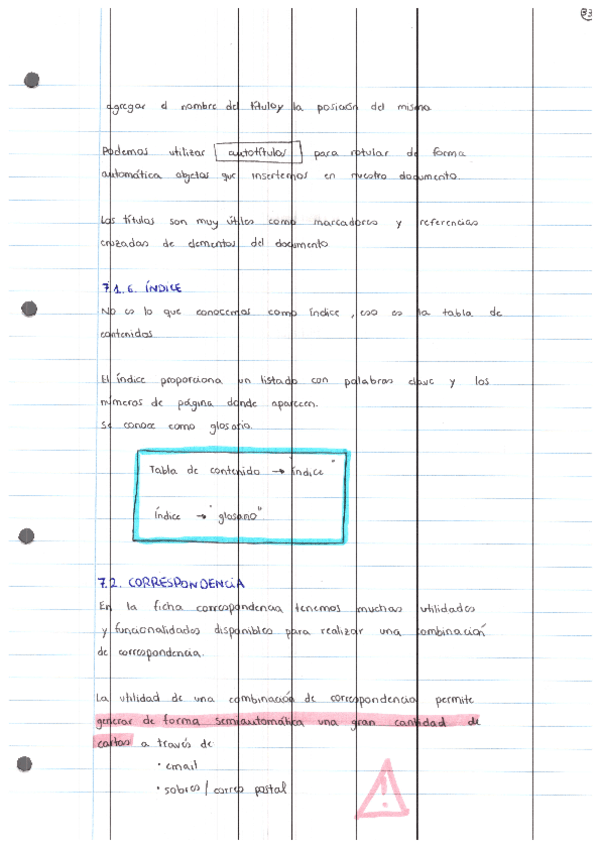 33
agregar el nombre del título y la posición del mismo
Podemos utilizar autotítulos para rotular de forma
automática objetos que insertemos en nuestro documento.
Los títulos son muy útiles como marcadores y referencias
cruzadas de elementos del documento
7.1.6. ÍNDICE
No es lo que conocemos como índice, eso es la tabla de
contenidos
El índice proporciona un listado con palabras clave y los
números de página donde aparecen.
Se conoce como glosario.
Tabla de contenido → "índice"
índice → "glosario"
7.2. CORRESPONDENCIA
En la ficha correspondencia tenemos muchas utilidades
y funcionalidades disponibles para realizar una combinación
de correspondencia.
La utilidad de una combinación de correspondencia permite
generar de forma semiautomática una gran cantidad de
cartas a través de:
· email
· sobres / correo postal
!